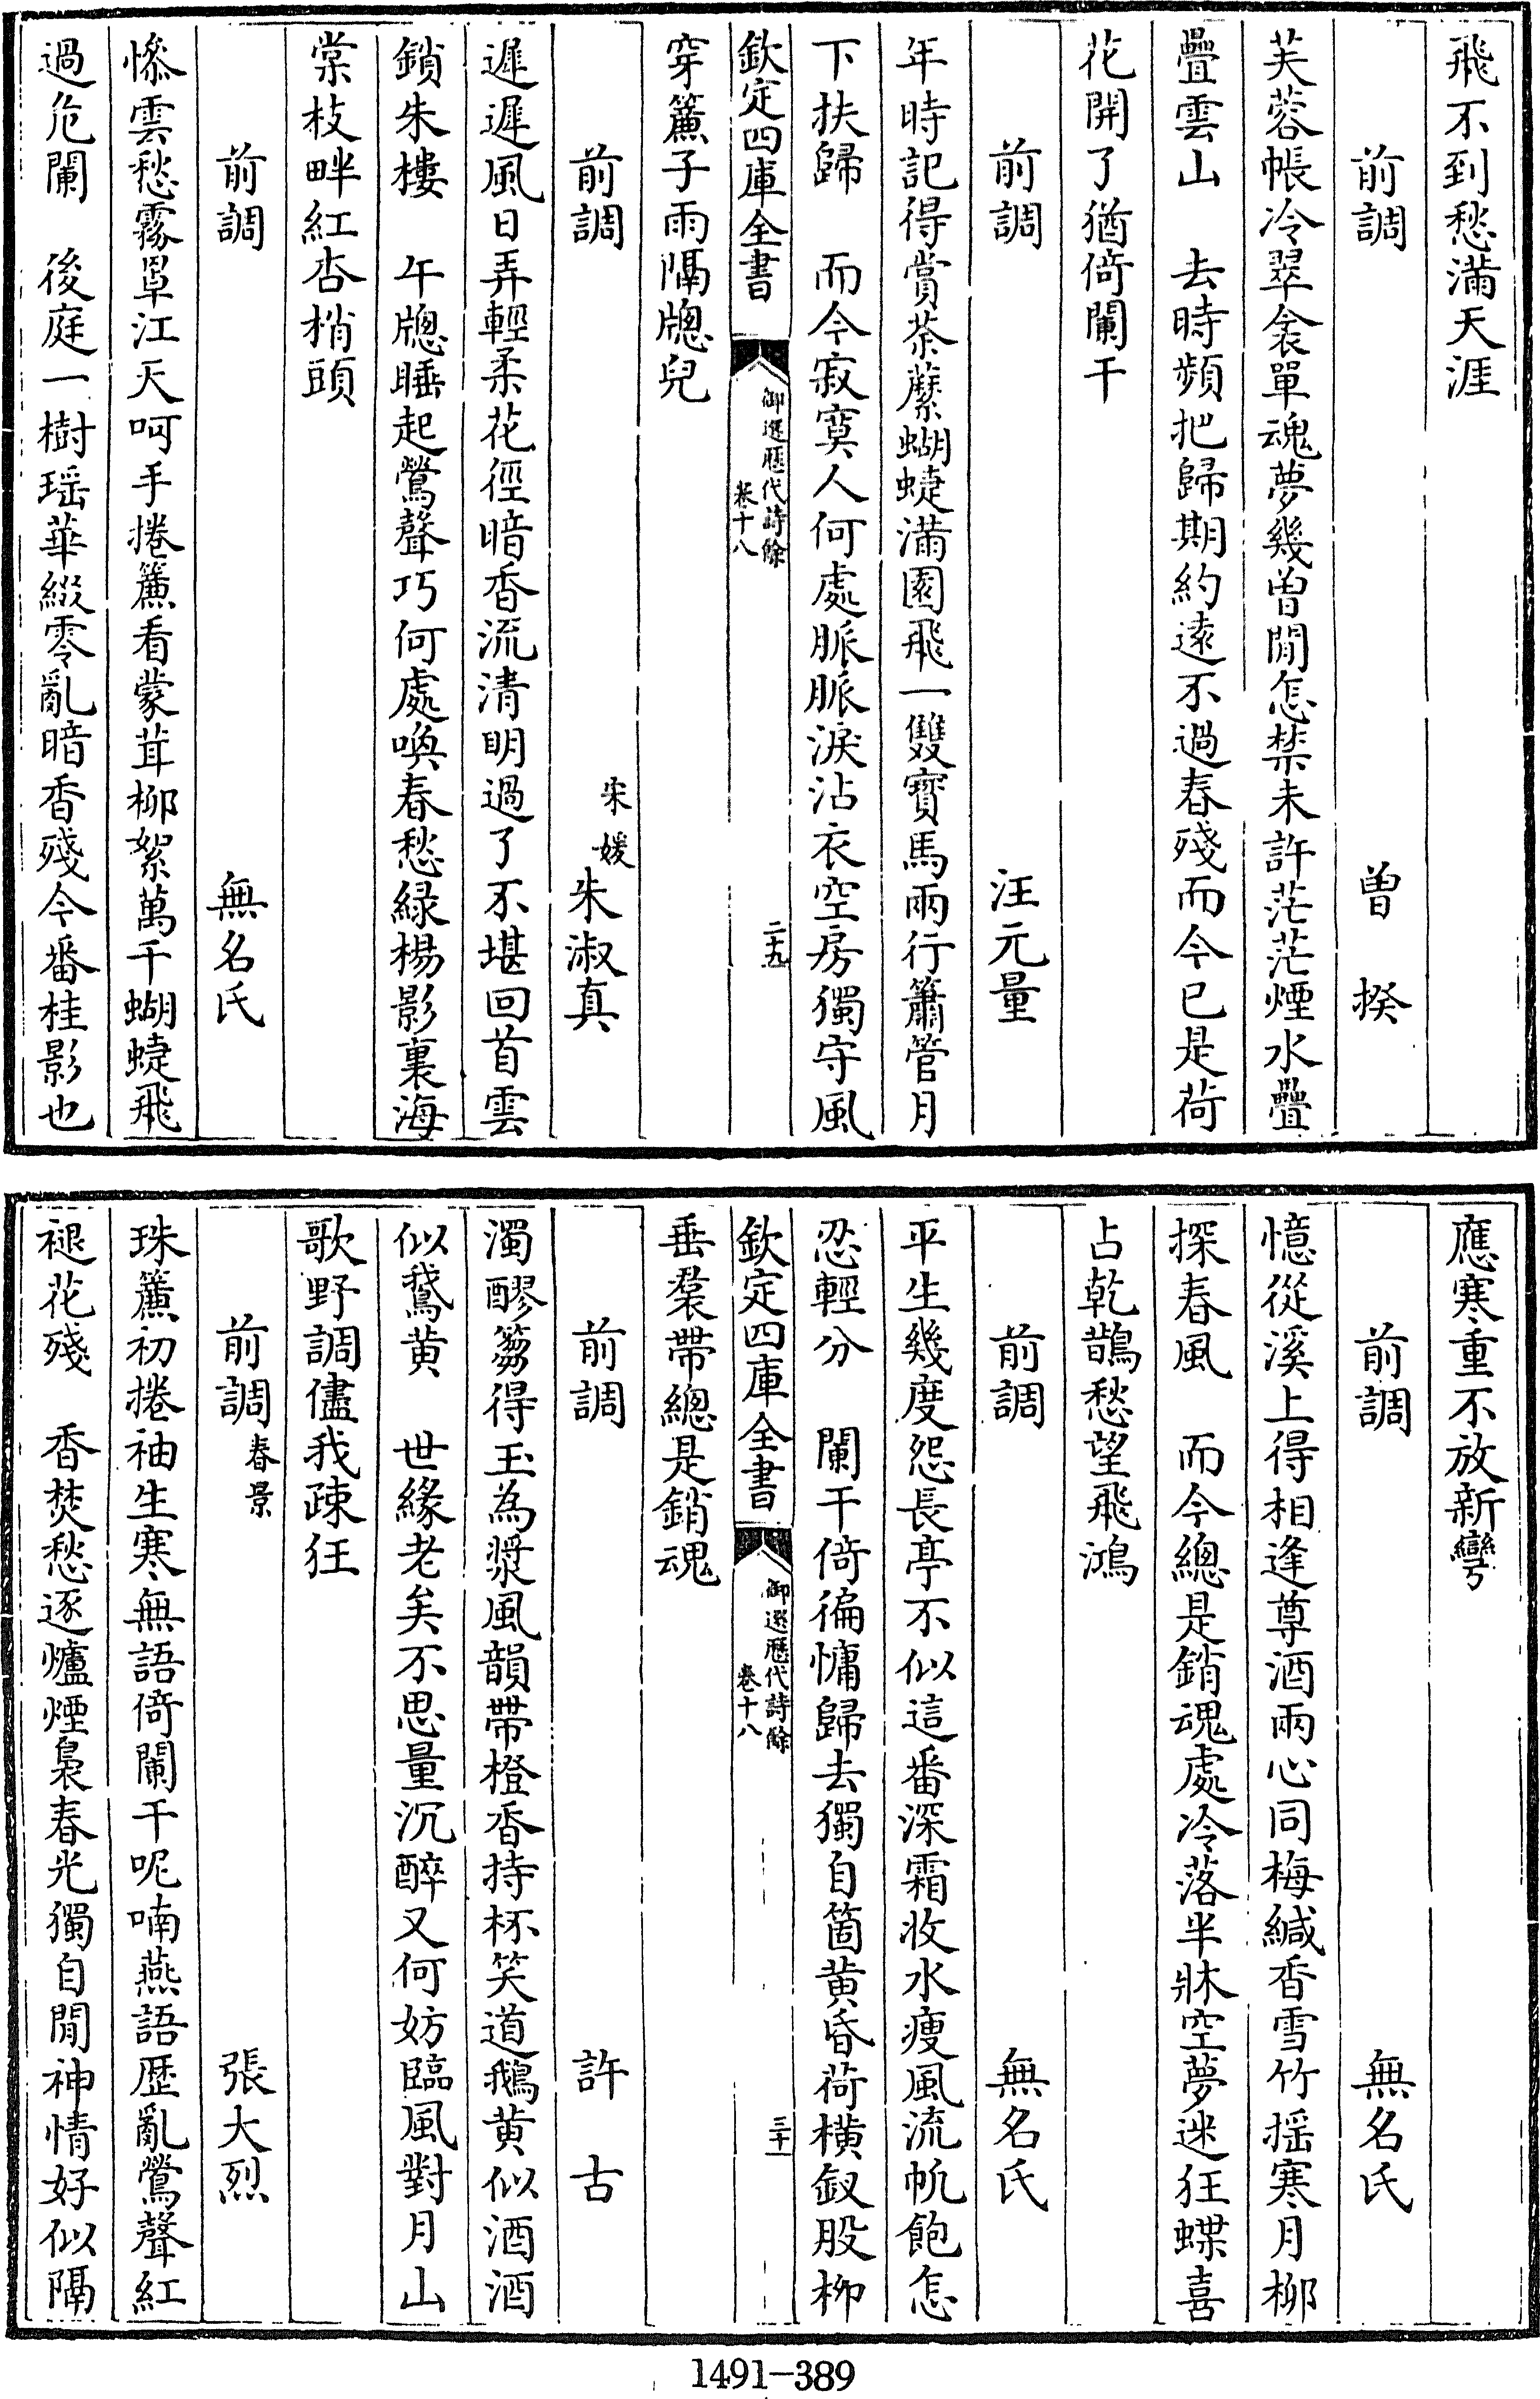 飛不到愁滿天涯
前調　曾揆
芙蓉帳冷翠衾單魂夢幾曾閒怎禁未許茫茫煙水疊
疊雲山　去時頻把歸期約遠不過春殘而今已是荷
花開了猶倚闌干
前調　汪元量
年時記得賞荼蘼蝴蝶滿園飛一雙寶馬兩行簫管月
下扶歸　而今寂寞人何處脈脈淚沾衣空房獨守風
欽定四庫全書　御選歷代詩餘　卷十八　二十九
穿簾子雨隔牕兒
前調　宋媛朱淑真
遲遲風日弄輕柔花徑暗香流清明過了不堪回首雲
鎖朱樓　午牕睡起鶯聲巧何處喚春愁綠楊影裏海
棠枝畔紅杏梢頭
前調　無名氏
慘雲愁霧罩江天呵手捲簾看蒙茸柳絮萬千蝴蝶飛
過危闌　後庭一樹瑶華綴零亂暗香殘今番桂影也
應寒重不放新彎
前調　無名氏
憶從溪上得相逢尊酒兩心同梅緘香雪竹摇寒月柳
探春風　而今總是銷魂處冷落半牀空夢迷狂蝶喜
占乾鵲愁望飛鴻
前調　無名氏
平生幾度怨長亭不似這番深霜收水瘦風流帆飽怎
忍輕分　闌干倚徧慵歸去獨自箇黄昏荷橫釵股柳
欽定四庫全書　御選歷代詩餘　卷十八　三十
垂羣帶總是銷魂
前調　許古
濁醪篘得玉為漿風韻帶橙香持杯笑道鵝黄似酒酒
似鵞黄　世緣老矣不思量沉醉又何妨臨風對月山
歌野調儘我疎狂
前調春景　張大烈
珠簾初捲袖生寒無語倚闌干呢喃燕語歷亂鶯聲紅
褪花殘　香焚愁逐爐煙裊春光獨自閒神情好似隔
1491—389